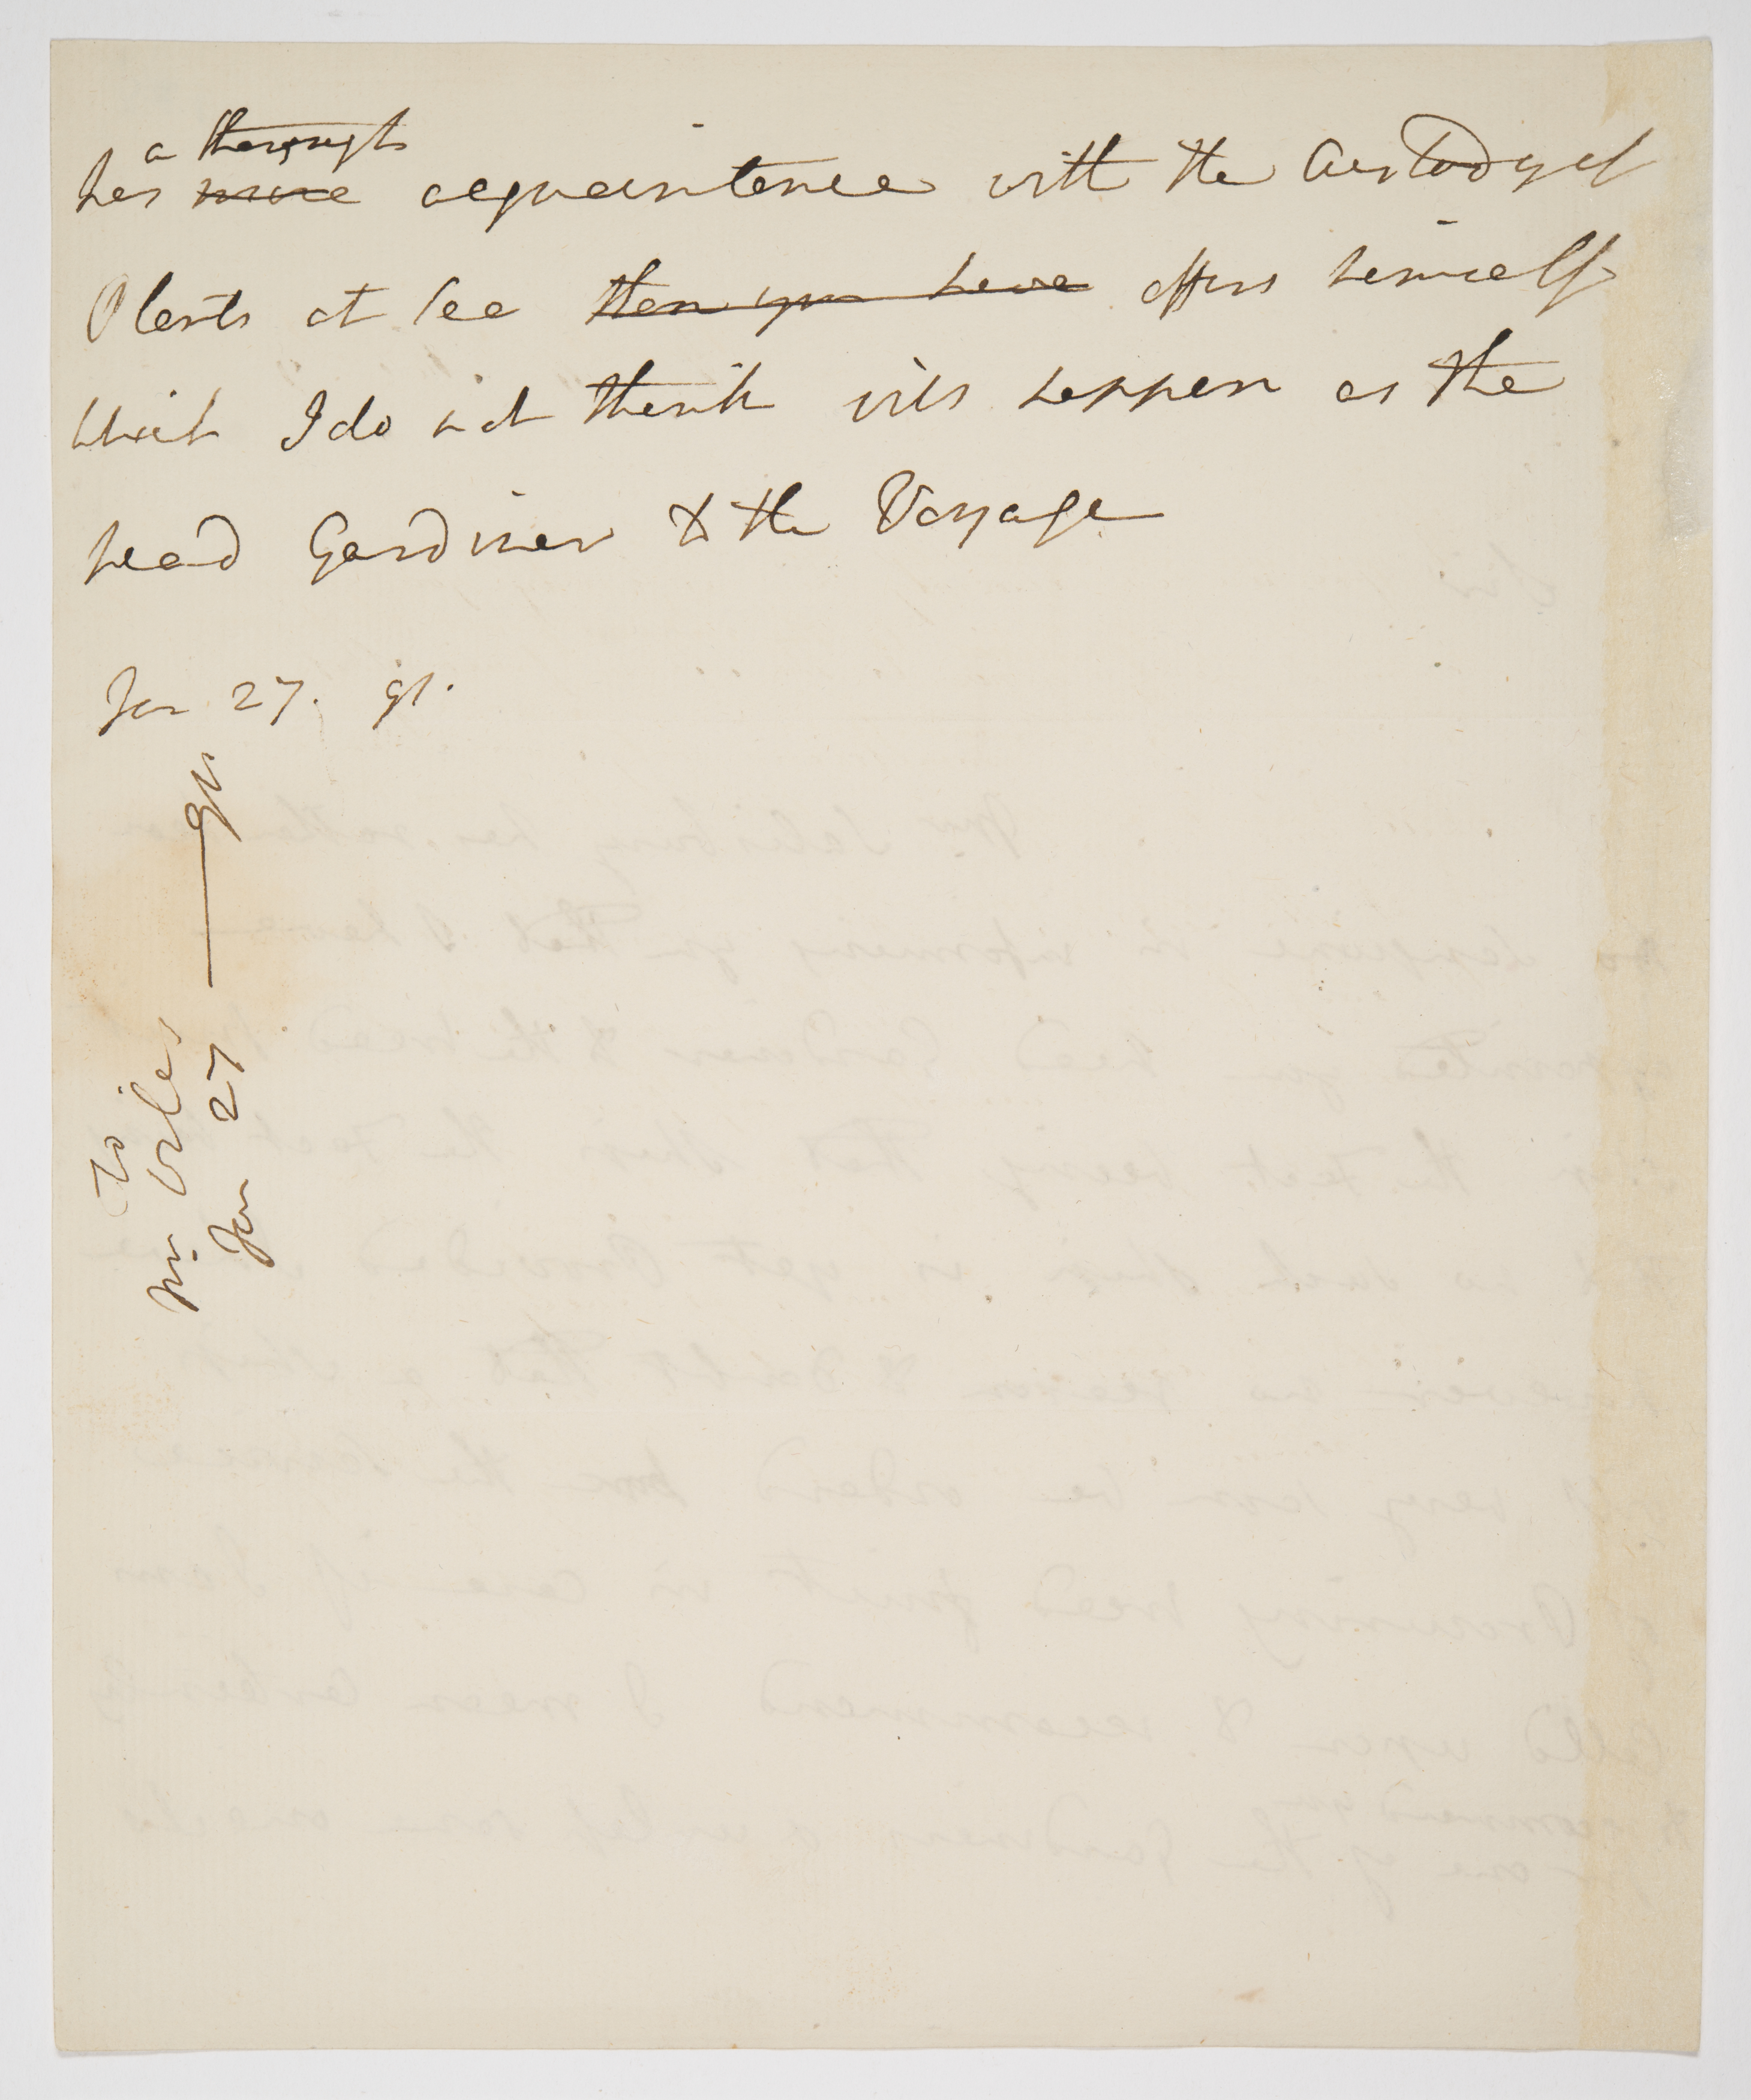 a thorough
has more acquaintance with the Custody of
Plants at Sea than you have offers himself
which I do not think will happen as the
head Gardiner to the Voyage
Jan 27. 91.
To
Mr. Wiles
Jan 27 — 91